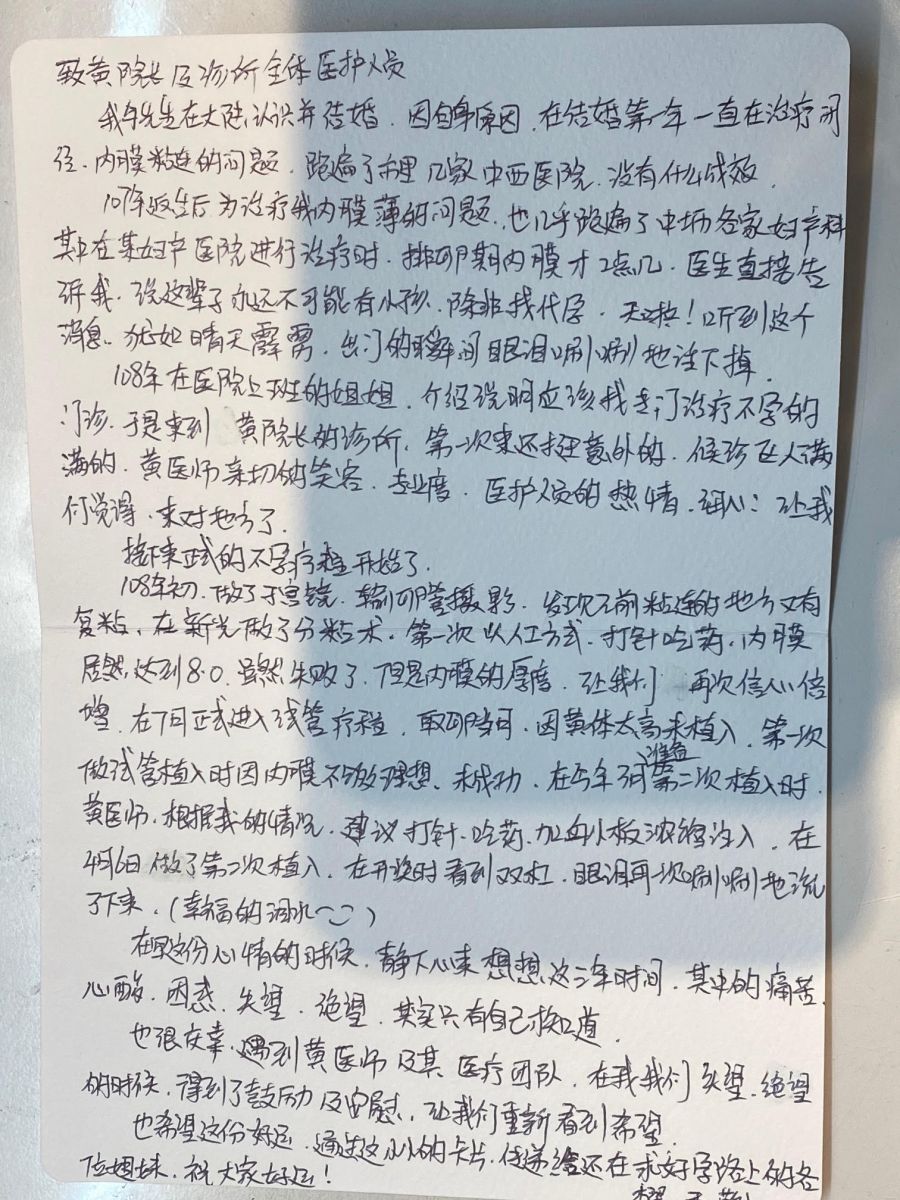 致黄院长及诊所全体医护人员
我与先生在大陆认识并结婚.因自身原因.在结婚第一年一直在治疗闭
经.内膜粘连的问题.跑遍了市里几家中西医院.没有什么成效.
107年返台后为治疗我内膜薄的问题.也几乎跑遍了中坜各家妇产科
其中在某妇产医院进行治疗时.排卵期内膜才2点几.医生直接告
诉我.说这辈子永远不可能有小孩.除非找代孕.天啦!听到这个
消息.犹如晴天霹雳.出门的瞬间眼泪唰唰地往下掉.
108年在医院上班的姐姐.介绍说明应该找专门治疗不孕的
门诊.于是来到 黄院长的诊所.第一次来还挺意外的.候诊区人满
满的.黄医师亲切的笑容.专业度.医护人员的热情.细心:让我
们觉得.来对地方了.
接下来正式的不孕疗程开始了.
108年初.做了子宫镜.输卵管摄影.发现之前粘连的地方又有
复粘.在新光做了分粘术.第一次以人工方式.打针吃药.内膜
居然达到8.0.虽然失败了.但是内膜的厚度.让我们 再次信心倍
增.在7月正式进入试管疗程.取卵当日.因黄体太高未植入.第一次
做试管植入时因内膜不够理想.未成功.在今年3月准备第二次植入时.
黄医师.根据我的情况.建议打针.吃药.加血小板浓缩注入.在
4月6日做了第二次植入.在开奖时看到双杠.眼泪再一次唰唰地流
了下来.(幸福的泪水~)
在写这份心情的时候.静下心来想想这三年时间.其中的痛苦.
心酸.困惑.失望.绝望.其实只有自己才知道.
也很庆幸.遇到黄医师及其医疗团队.在我我们失望.绝望
的时候.得到了鼓励及安慰.让我们重新看到希望.
也希望这份好运.通过这小小的卡片.传递给还在求好孕路上的各
位姐妹.祝大家好运!